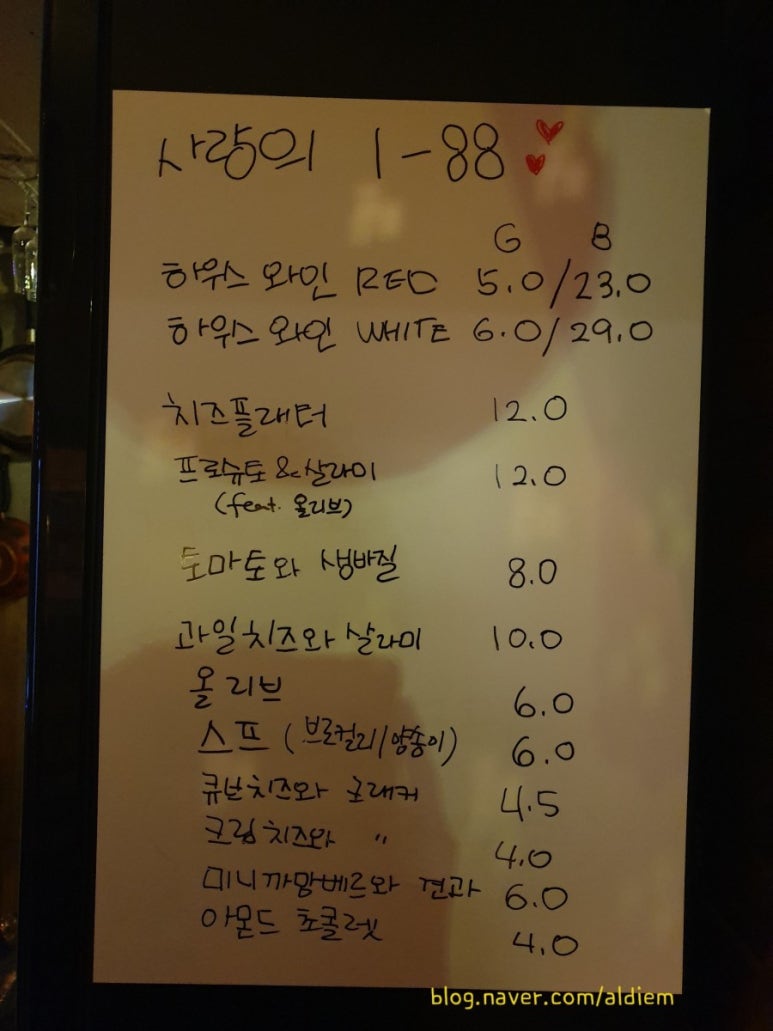 사랑의 1-88
G B
하우스 와인 RED 5.0/23.0
하우스 와인 WHITE 6.0/29.0
치즈플래터 12.0
프로슈토&살라미 12.0
(feat. 올리브)
토마토와 생바질 8.0
과일치즈와 살라미 10.0
올리브 6.0
스프 (브로컬리/양송이) 6.0
큐브치즈와 크래커 4.5
크림치즈와 〃 4.0
미니까망베르와 견과 6.0
아몬드 쵸콜렛 4.0
blog.naver.com/aldiem